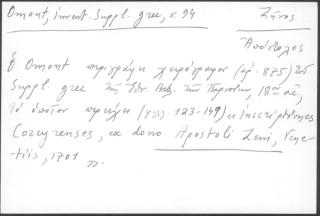 Omont, invent. Suppl. grec, σ. 94
Ζήνος
Ἀπόστολος
Ὁ Omont περιγράφει χειρόγραφον (ἀρ. 885) τοῦ
Suppl. grec τῆς Ἐθν. Βιβ. τῶν Παρισίων, 18ου αἰ.,
τὸ ὁποῖον περιέχει (γρ. 123-149) « inscriptiones
Corcyrenses, ex dono Apostoli Zeni, Vene-
tiis, 1701 ».